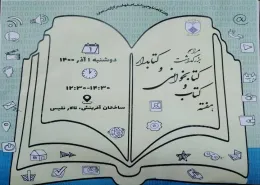 مراسم
بزرگداشت
هفته
کتاب و
کتابخوانی
و کتابدار
دوشنبه ۱ آذر ۱۴۰۰
۱۲:۳۰-۱۴:۳۰
ساختمان آفرینش، تالار نفیس